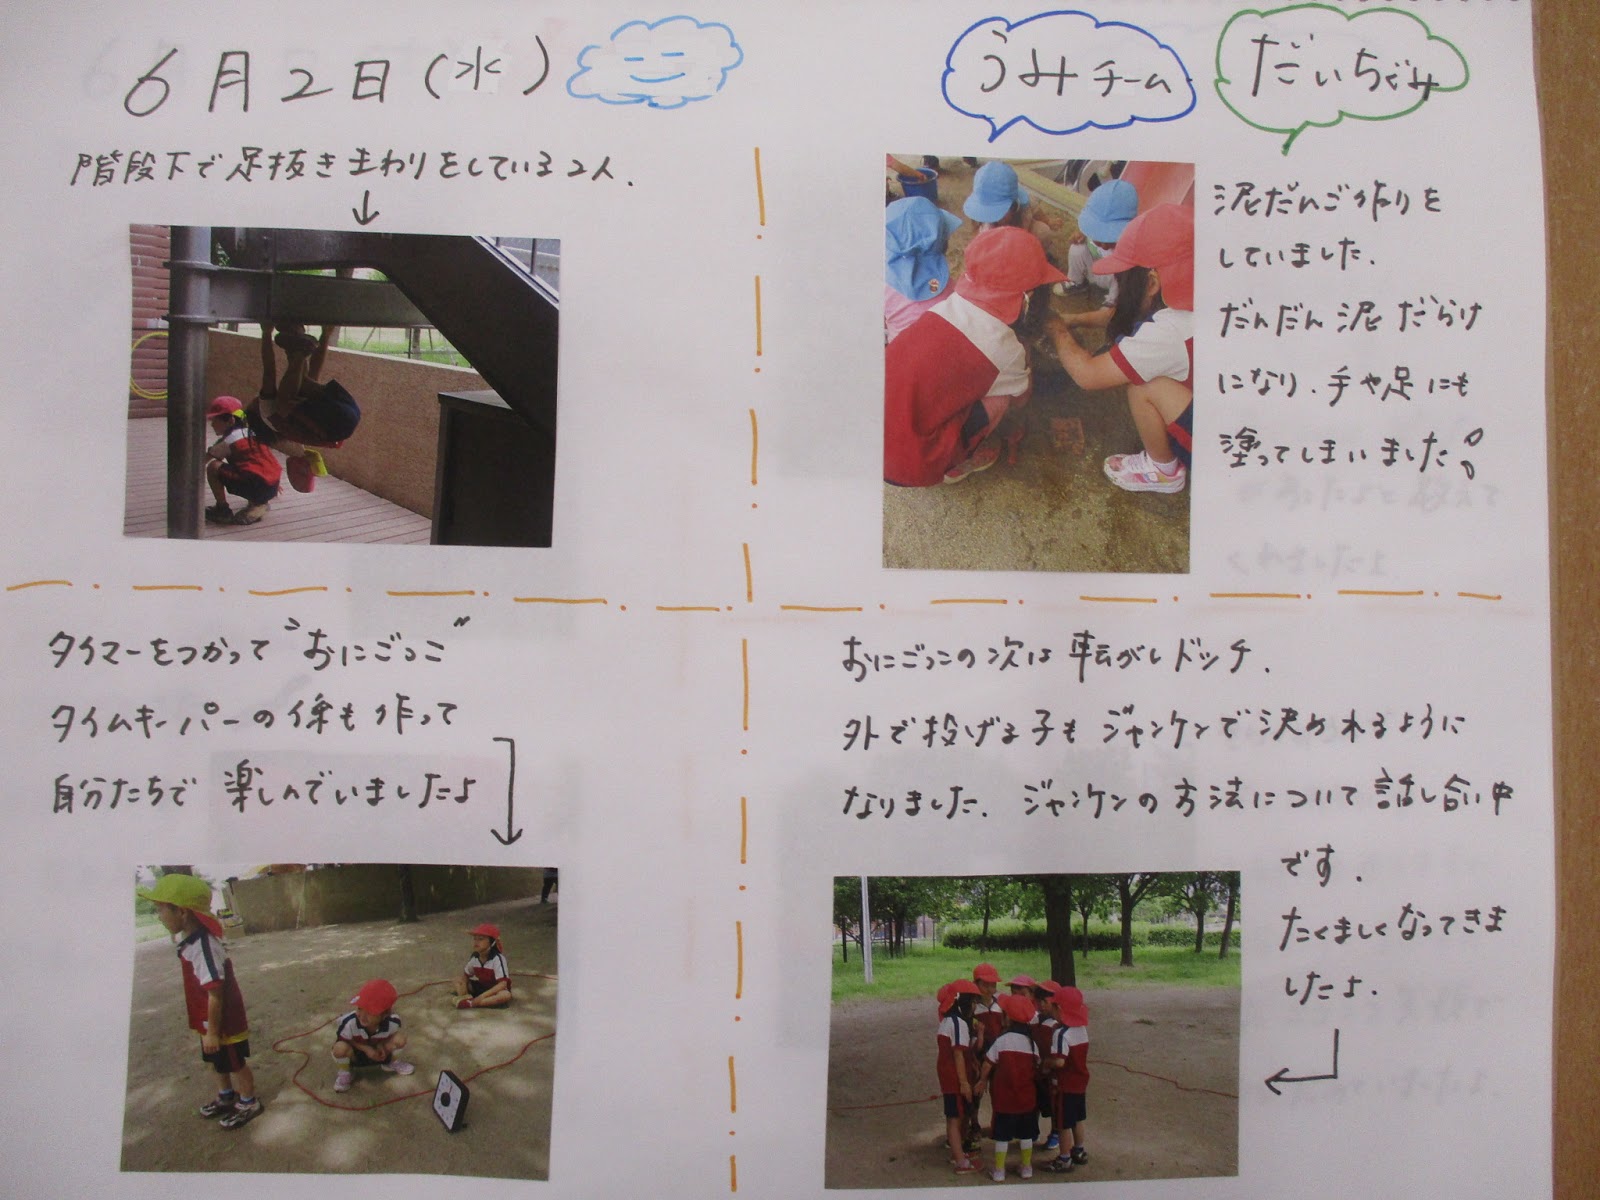 6月2日(水)
うみチーム
だいちぐみ
階段下で足抜きまわりをしている2人.
泥だんご作りを
していました.
だんだん泥だらけ
になり.手や足にも
塗ってしまいました
タイマーをつかって"おにごっこ"
タイムキーパーの係も作って
自分たちで楽しんでいましたよ
おにごっこの次は転がしドッチ.
外で投げる子もジャンケンで決めれるように
なりました.ジャンケンの方法について話し合い中
です.
たくましくなってきま
したよ.